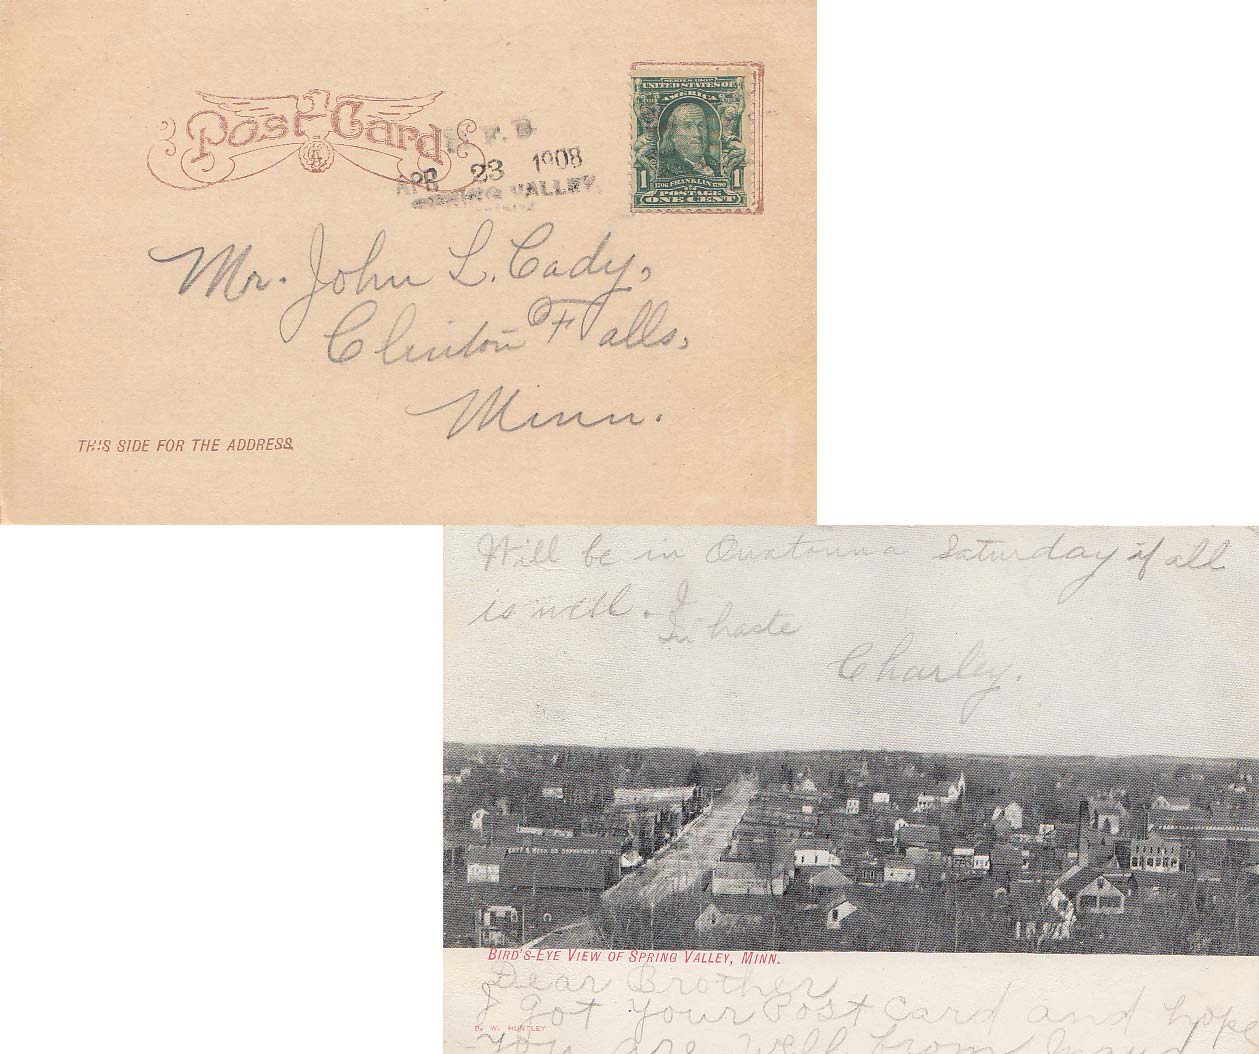 Post Card
R. F. D.
APR 23 1908
SPRING VALLEY,
SERIES 1902
UNITED STATES OF
AMERICA
1 1706 FRANKLIN 1790 1
POSTAGE
ONE CENT
Mr. John L. Cady,
Clinton Falls,
Minn.
THIS SIDE FOR THE ADDRESS.
Will be in Owatonna Saturday if all
is well.
In haste
Charley.
BIRD'S-EYE VIEW OF SPRING VALLEY, MINN.
Dear Brother
I got your Post Card and hope
B. W. HUNTLEY
you are well from